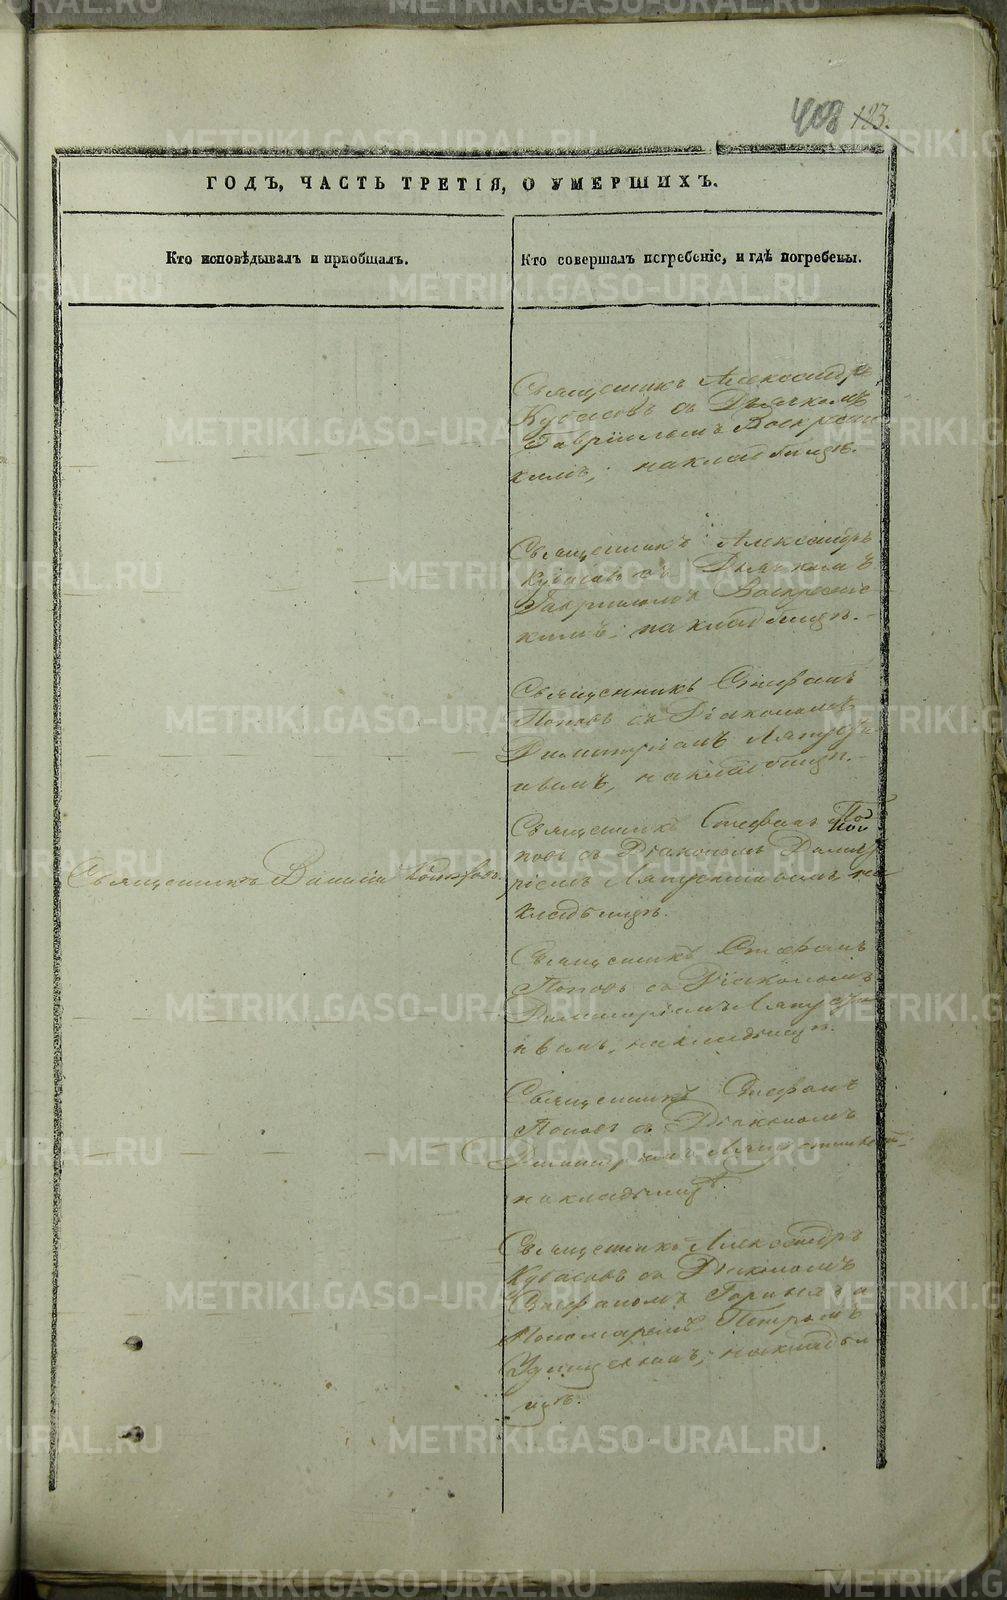 408 123.
ГОДЪ, ЧАСТЬ ТРЕТІЯ, О УМЕРШИХЪ.
Кто исповѣдывалъ и пріобщалъ.
Кто совершалъ погребеніе, и гдѣ погребены.
Священникъ Александръ
Кубасовъ съ Дьячкомъ
Гавріиломъ Воскресенс
кимъ, на кладбищѣ.
Священникъ Александръ
Кубасовъ съ Дьячкомъ
Гавриломъ Воскресенс
кимъ, на кладбищѣ.
Священникъ Стефанъ
Поповъ съ Діакономъ
Димитріемъ Ляпусти
нымъ, на кладбищѣ.
Священникъ Василій
Священникъ Стефанъ По
повъ съ Діакономъ Димит
ріемъ Ляпустинымъ, на
кладбищѣ.
Священникъ Стефанъ
Поповъ съ Діакономъ
Димитріемъ Ляпусти
нымъ, на кладбищѣ.
Священникъ Стефанъ
Поповъ съ Діакономъ
Димитріемъ Ляпустинымъ
на кладбищѣ.
Священникъ Александръ
Кубасовъ съ Діакономъ
Стефаномъ
Пономаремъ Петромъ
на кладби
щѣ.
METRIKI.GASO-URAL.RU